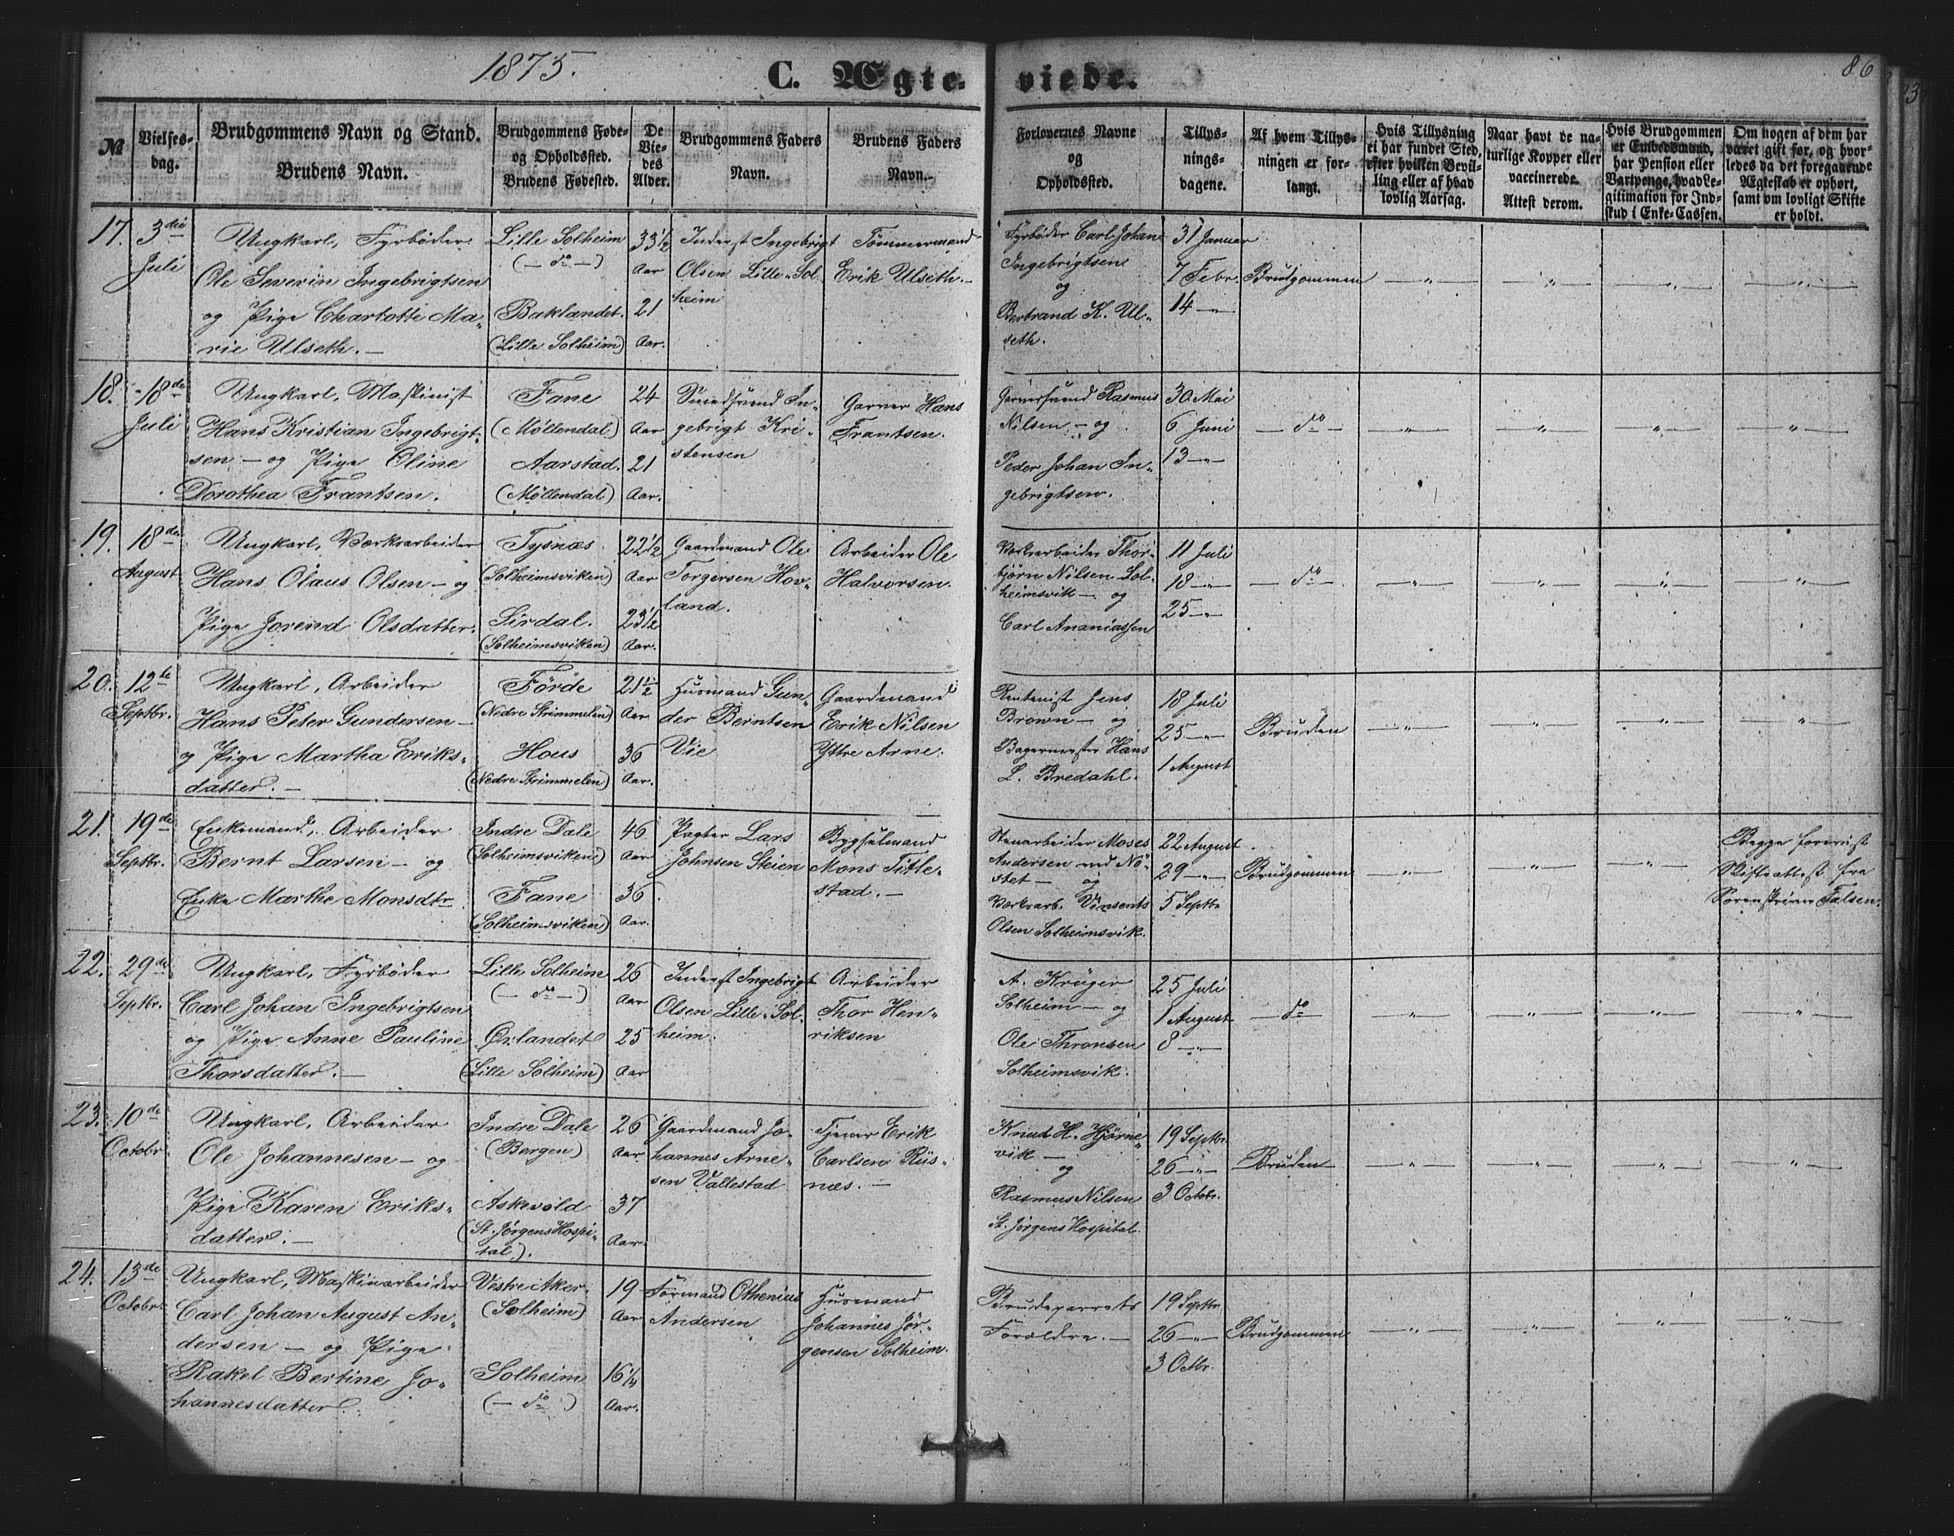 1875.
C. Ægte-
viede.
86
№
Vielses-
dag.
Brudgommens Navn og Stand.
Brudens Navn.
Brudgommens Føde-
og Opholdssted.
Brudens Fødested.
De
Vie-
des
Alder.
Brudgommens Faders
Navn.
Brudens Faders
Navn.
Forlovernes Navne
og
Opholdssted.
Tillys-
nings-
dagene.
Af hvem Tillys-
ningen er for-
langt.
Hvis Tillysning
ei har fundet Sted,
efter hvilken Bevil-
ling eller af hvad
lovlig Aarsag.
Naar havt de na-
turlige Kopper eller
vaccinerede.
Attest derom.
Hvis Brudgommen
er Embedsmand,
har Pension eller
Vartpenge, hvad Le-
gitimation for Ind-
skud i Enke-Cassen.
Om nogen af dem har
været gift før, og hvor-
ledes da det foregaaende
Ægteskab er ophørt,
samt om lovligt Skifte
er holdt.
17.
3die
Juli
Ungkarl, Fyrbøder
Ole Severin Ingebrigtsen
og Pige Charlotte Ma-
rie Ulseth. —
Lille Solheim
(— do —)
Baklandet.
(Lille Solheim)
33½
Aar
21
Aar.
Inderst Ingebrigt
Olsen Lille-Sol-
heim
Tømmermand
Erik Ulseth. —
Fyrbøder Carl Johan
Ingebrigtsen
og
Bertrand K. Ul-
seth.
31 Januar
7 Febr.
14 —"—
Brudgommen
—"—
—"—
—"—
—"—
18.
18de
Juli
Ungkarl, Maskinist
Hans Kristian Ingebrigt-
sen — og Pige Oline
Dorothea Frantsen.
Fane
(Møllendal)
Aarstad.
(Møllendal)
24
Aar
21
Aar.
Smedsvend In-
gebrigt Kri-
stensen
Garver Hans
Frantsen.
Garversvend Rasmus
Nilsen — og
Peder Johan In-
gebrigtsen.
30 Mai
6 Juni
13 —"—
— do —
—"—
—"—
—"—
—"—
19.
18de
August
Ungkarl, Værksarbeider
Hans Olaus Olsen — og
Pige Jorend Olsdatter.
Tysnæs
(Solheimsviken)
Sirdal.
(Solheimsviken)
22½
Aar
23½
Aar.
Gaardmand Ole
Torgersen Hov-
land.
Arbeider Ole
Halvorsen.
Værksarbeider Thor-
bjørn Nilsen Sol-
heimsvik — og
Carl Ananiassen
11 Juli
18 —"—
25 —"—
— do —
—"—
—"—
—"—
—"—
20.
12te
Septbr.
Ungkarl, Arbeider
Hans Peter Gundersen —
og Pige Martha Eriks-
datter. —
Førde
(Nedre Strimmelen)
Hous
(Nedre Strimmelen)
21½
Aar
36
Aar.
Husmand Gun-
der Berntsen
Vie
Gaardmand
Erik Nilsen
Yttre Arne.
Rentenist Jens
Brown — og
Bagermester Hans
L. Bredahl.
18 Juli
25 —"—
1 August
Bruden
—"—
—"—
—"—
—"—
21.
19de
Septbr.
Enkemand, Arbeider
Bernt Larsen — og
Enke Marthe Monsdtr.
Indre Dale
(Solheimsviken)
Fane
(Solheimsviken)
46
Aar
36
Aar.
Pagter Lars
Johnsen Steien
Bygselmand
Mons Title-
stad. —
Stenarbeider Moses
Andersen ved Nö-
stet — og
Værksarb. Vinsents
Olsen Solheimsvik.
22 August
29 —"—
5 Septbr.
Brudgommen
—"—
—"—
—"—
Begge foreviist
Skifteattest fra
Sorenskriver Falsen.
22.
29de
Septbr.
Ungkarl, Fyrbøder
Carl Johan Ingebrigtsen
og Pige Anne Pauline
Thorsdatter. —
Lille Solheim
(— do —)
Ørlandet
(Lille Solheim)
26
Aar
25
Aar
Inderst Ingebrigt
Olsen Lille-Sol-
heim.
Arbeider
Thor Hen-
riksen
A. Krüger
Solheim — og
Ole Thronsen
Solheimsvik.
25 Juli
1 August
8 —"—
— do —
—"—
—"—
—"—
—"—
23.
10de
Octobr.
Ungkarl, Arbeider
Ole Johannesen — og
Pige Karen Eriks-
datter. —
Indre Dale
(Bergen)
Askevold
(St. Jørgens Hospi-
tal.)
26
Aar
37
Aar.
Gaardmand Jo-
hannes Arne-
sen Vallestad
Tjener Erik
Carlsen Riis-
næs. —
Knud H. Hjørne-
vik —
og
Rasmus Nilsen
St. Jørgens Hospital.
19 Septbr.
26 —"—
3 Octobr.
Bruden
—"—
—"—
—"—
—"—
24.
13de
Octobr.
Ungkarl, Maskinarbeider
Carl Johan August An-
dersen — og Pige
Rakel Bertine Jo-
hannesdatter.
Vestre Aker
(Solheim)
Solheim
(— do —)
19
Aar
16¼
Aar.
Formand Othenius
Andersen
Husmand
Johannes Jør-
gensen Solheim.
Brudeparrets
Forældre. —
19 Septbr.
26 —"—
3 Octbr.
Brudgommen
—"—
—"—
—"—
—"—